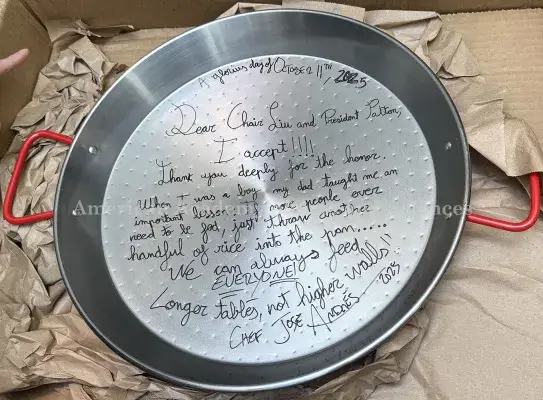 A glorius day of October 11TH, 2025
Dear Chair Liu and President Patton,
I accept!!!!
Thank you deeply for the honor.
When I was a boy my dad taught me an
important lesson: if more people ever
need to be fed, just throw another
handful of rice into the pan.....
We can always feed
EVERYONE!
Longer tables, not higher walls!!
CHEF JOSÉ ANDRÉS 2025